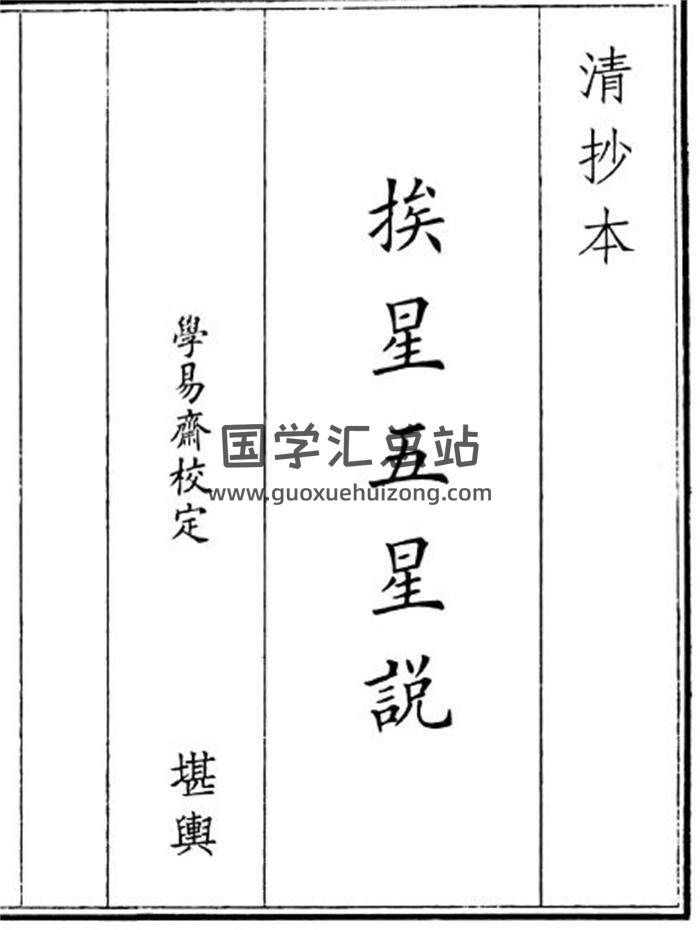 清抄本
挨星五星説
學易齋校定
堪輿
国学汇总站
www.guoxuehuizong.com